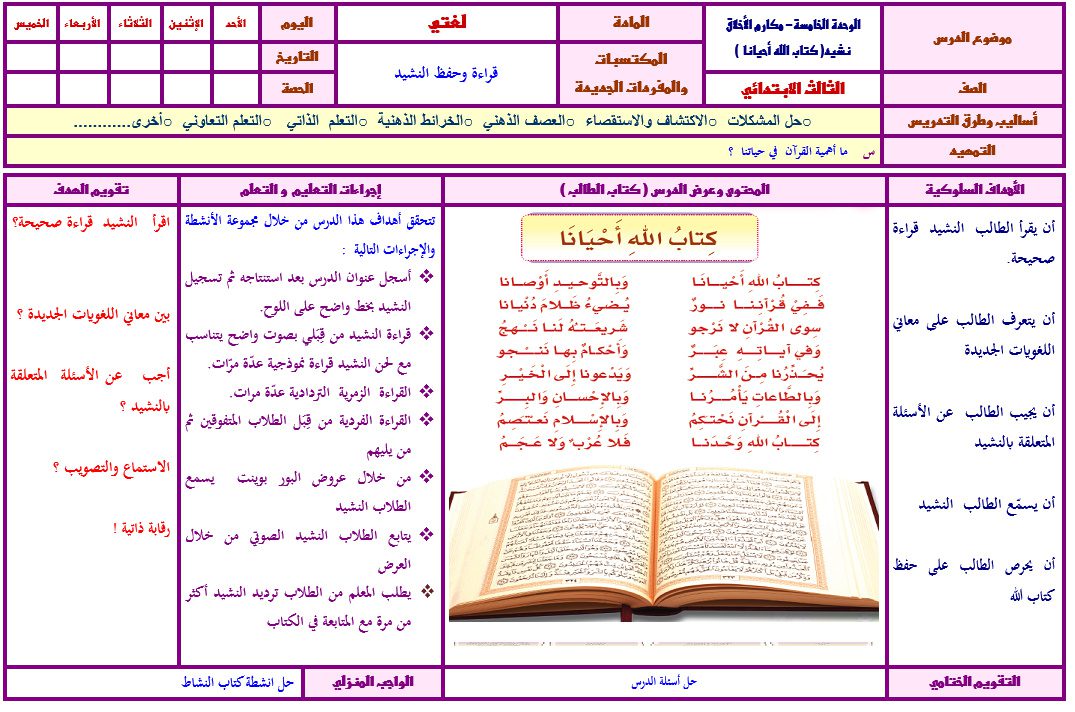 موضوع الدرس
الوحدة الخامسة - مكارم الأخلاق
نشيد( كتاب الله أحيانا )
المادة
لغتي
اليوم
الأحد
الإثنين
الثلاثاء
الأربعاء
الخميس
الصف
الثالث الابتدائي
المكتسبات
والمفردات الجديدة
قراءة وحفظ النشيد
التاريخ
الحصة
أساليب وطرق التدريس
○حل المشكلات ○الاكتشاف والاستقصاء ○العصف الذهني ○الخرائط الذهنية ○التعلم الذاتي ○التعلم التعاوني ○أخرى............
التمهيد
س ما أهمية القرآن في حياتنا ؟
الأهداف السلوكية
أن يقرأ الطالب النشيد قراءة
صحيحة.
أن يتعرف الطالب على معاني
اللغويات الجديدة
أن يجيب الطالب عن الأسئلة
المتعلقة بالنشيد
أن يسمّع الطالب النشيد
أن يحرص الطالب على حفظ
كتاب الله
المحتوى وعرض الدرس ( كتاب الطالب )
كِتابُ اللهِ أَحْيَانَا
كِتـــابُ اللهِ أَحْيـــانَـا وَبِالتَّوحيـدِ أَوْصـانا
فَـفـي قُـرْآنِـنـا نـورٌ يُـضـيءُ ظَـلامَ دُنْيـانا
سِوى القُرْآنِ لا نَرْجو شَريعَـتُهُ لَنـا نَـهْـجٌ
وَفي آيـاتِـهِ عِـبَـرٌ وَأَحْكـامٌ بِها نَـنْـجو
يُحَـذِّرُنا مِـنَ الشَّـرِّ وَيَدْعونا إِلى الْخَـيْـرِ
وَبِالطَّاعاتِ يَأْمُـرُنا وَبِالإِحْسانِ وَالبِـرِّ
إِلى الْقُـرآنِ نَحْتكِمُ وَبِالإِسْـلامِ نَعتصِمُ
كِتـابُ اللهِ وَحَّدَنـا فَلا عُرْبٌ وَلا عَـجَـمُ
إجراءات التعليم و التعلم
تتحقق أهداف هذا الدرس من خلال مجموعة الأنشطة
والإجراءات التالية :
❖ أسجل عنوان الدرس بعد استنتاجه ثم تسجيل
النشيد بخط واضح على اللوح.
❖ قراءة النشيد من قِبَلي بصوت واضح يتناسب
مع لحن النشيد قراءة نموذجية عدّة مرّات.
❖ القراءة الزمرية الترددادية عدّة مرات.
❖ القراءة الفردية من قِبَل الطلاب المتفوقين ثم
من يليهم
❖ من خلال عروض البور بوينت يسمع
الطلاب النشيد
❖ يتابع الطلاب النشيد الصوتي من خلال
العرض
❖ يطلب المعلم من الطلاب ترديد النشيد أكثر
من مرة مع المتابعة في الكتاب
تقويم الهدف
اقرأ النشيد قراءة صحيحة؟
بين معاني اللغويات الجديدة ؟
أجب عن الأسئلة المتعلقة
بالنشيد ؟
الاستماع والتصويب ؟
رقابة ذاتية !
التقويم الختامي
حل أسئلة الدرس
الواجب المنزلي
حل انشطة كتاب النشاط